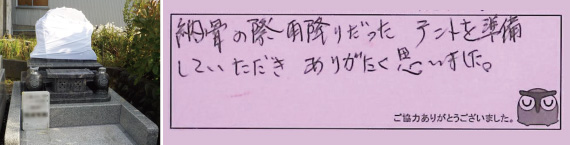 納骨の際雨降りだった テントを準備
していただき ありがたく思いました。
ご協力ありがとうございました。